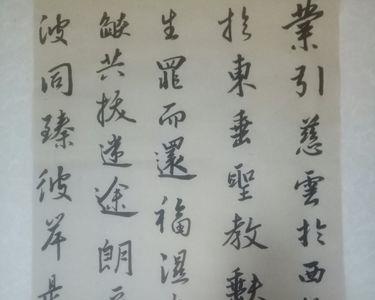 業引慈雲於西
於東垂聖教缺
生罪而還福濕
缺共拔迷途朗
波同臻彼岸是